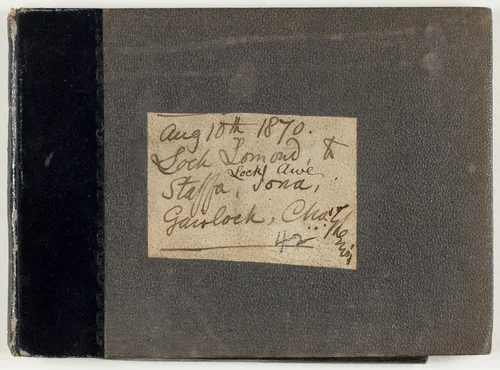 Aug 10th 1870.
Loch Lomond, &
Loch Awe
Staffa, Iona,
Gairloch,
42